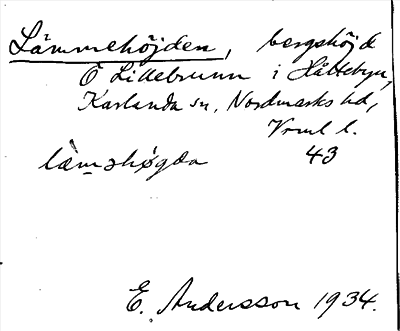 Lämmehöjden, bergshöjd
Ö Lillebrunn i Håltebyn,
Karlanda sn, Nordmarks hd,
Vrml l.
lämǝhøgda 43
E. Andersson 1934.